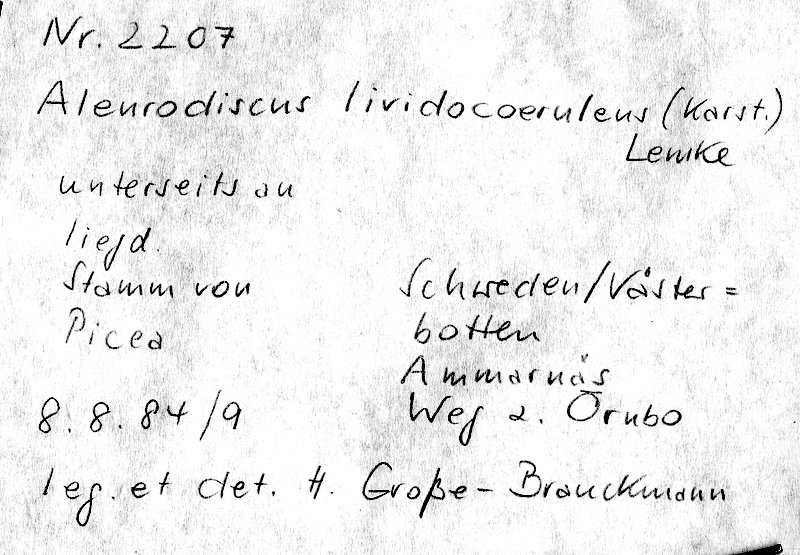 Nr. 2207
Aleurodiscus lividocoeruleus (Karst.)
Lemke
unterseits an
liegd.
Stamm von
Picea
Schweden/Väster=
botten
Ammarnäs
8.8.84/9
Weg z. Örnbo
leg. et det. H. Große-Brauckmann